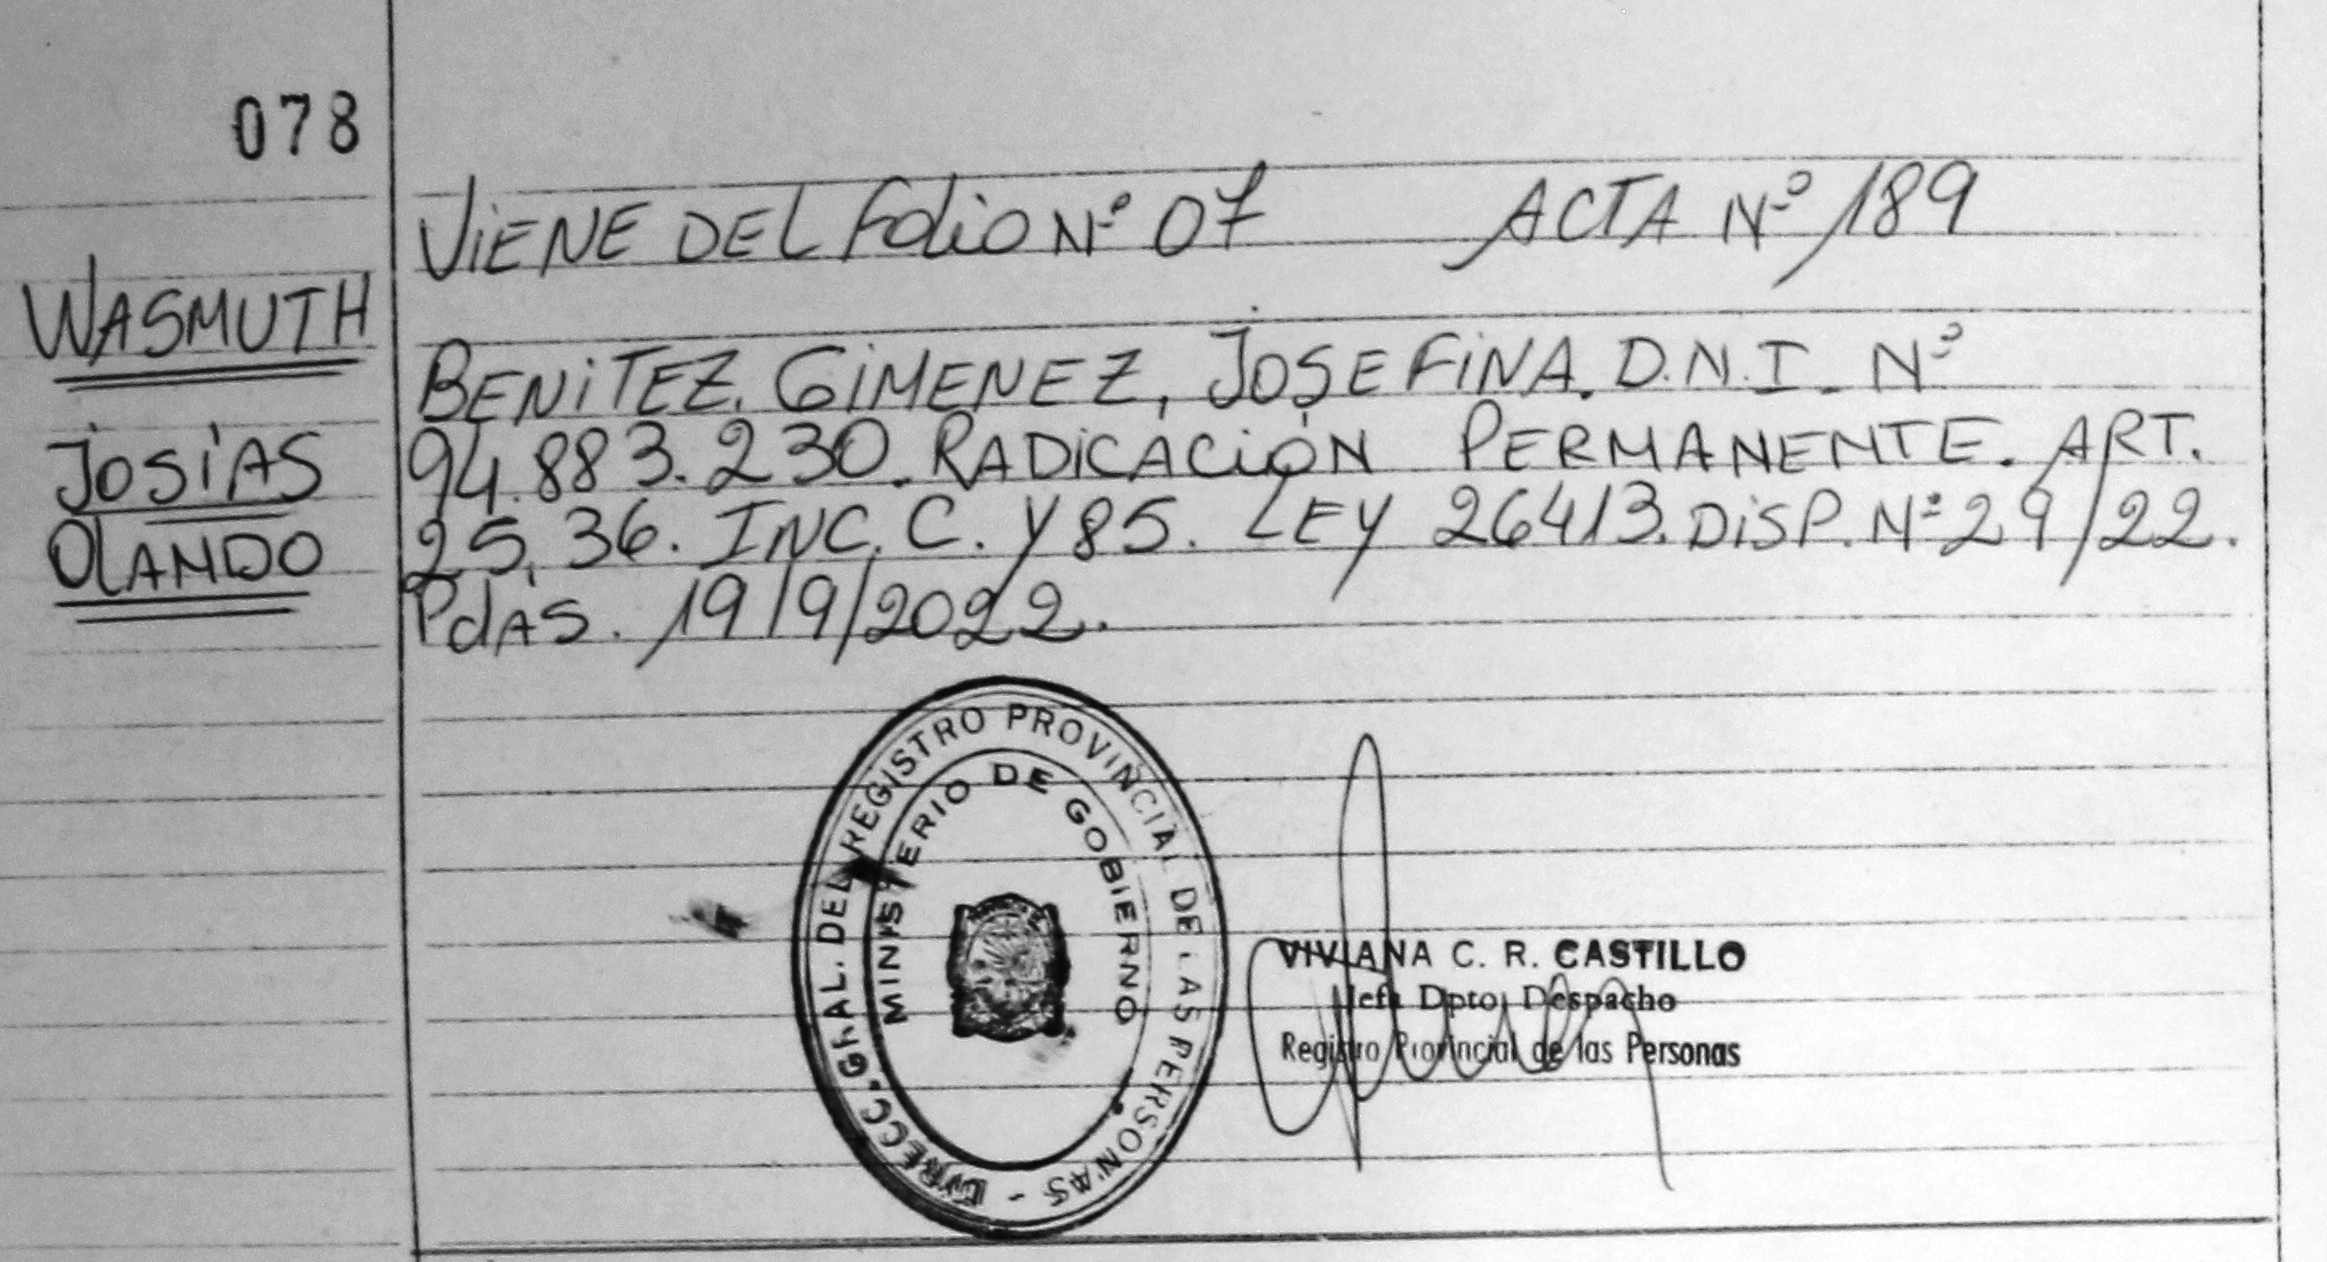 078
VIENE DEL FOLIO Nº 07 ACTA Nº 189
WASMUTH
JOSÍAS
OLANDO
BENITEZ. GIMENEZ, JOSEFINA. D.N.I. Nº
94.883.230. RADICACIÓN PERMANENTE. ART.
25, 36. INC. C. Y 85. LEY 26413. DISP. Nº 29/22.
PdAS. 19/9/2022.
DIRECC. GRAL. DEL REGISTRO PROVINCIAL DE LAS PERSONAS -
MINISTERIO DE GOBIERNO
VIVIANA C. R. CASTILLO
Jefa Dpto. Despacho
Registro Provincial de las Personas